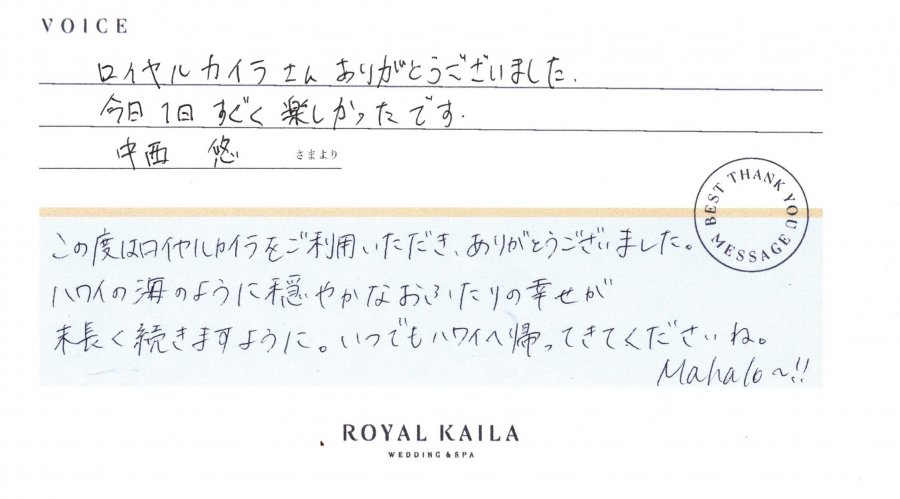 VOICE
ロイヤルカイラさん ありがとうございました.
今日1日 すごく 楽しかったです.
中西 悠 さまより
BEST THANK YOU MESSAGE
この度はロイヤルカイラをご利用いただき、ありがとうございました。
ハワイの海のように穏やかなおふたりの幸せが
末長く続きますように。いつでもハワイへ帰ってきてくださいね。
Mahalo~!!
ROYAL KAILA
WEDDING & SPA